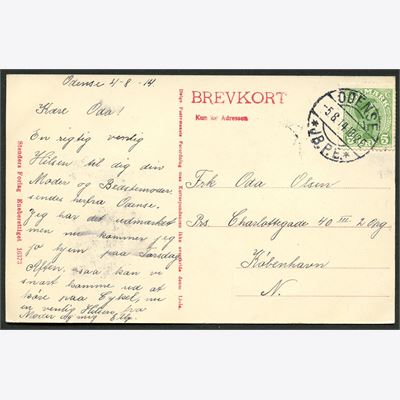 Odense 4-8-14.
Kære Oda!
En rigtig venlig
Hilsen til dig din
Moder og Bedstemoder
sendes herfra Odense.
Jeg har det udmærket
men nu kommer jeg
jo hjem paa Torsdag
Aften, saa kan vi
snart komme ud at
køre paa Cykel, nu
en venlig Hilsen fra
Moder og mig
Stenders Forlag Eneberettiget 1673
BREVKORT
Kun for Adressen
Frk Oda Olsen
Prs. Charlottegade 40 III 2 Opg
København
N.
ODENSE
5.8.14
*JB.P.E.*
MARK
5